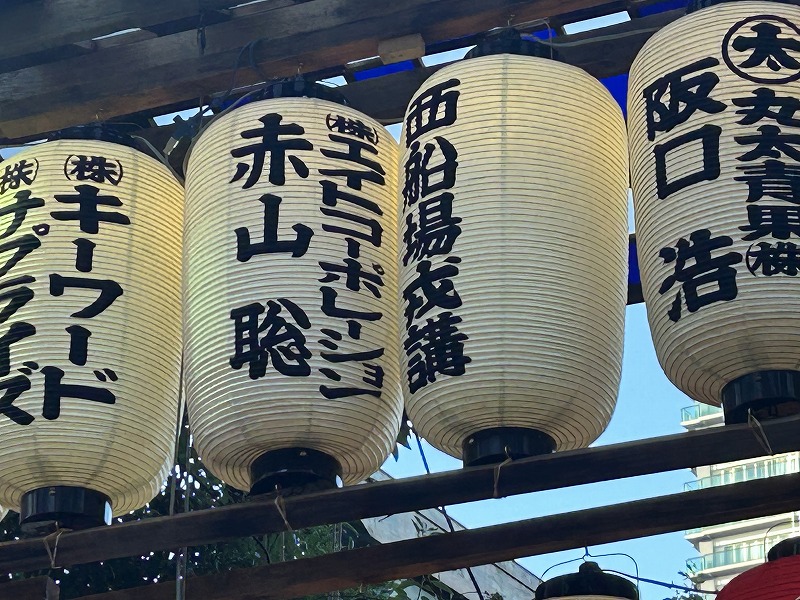 ㈱キーワード
㈱ナプライズ
㈱エイトコーポレーション
赤山 聡
西船場戎講
太
丸太青果㈱
阪口 浩